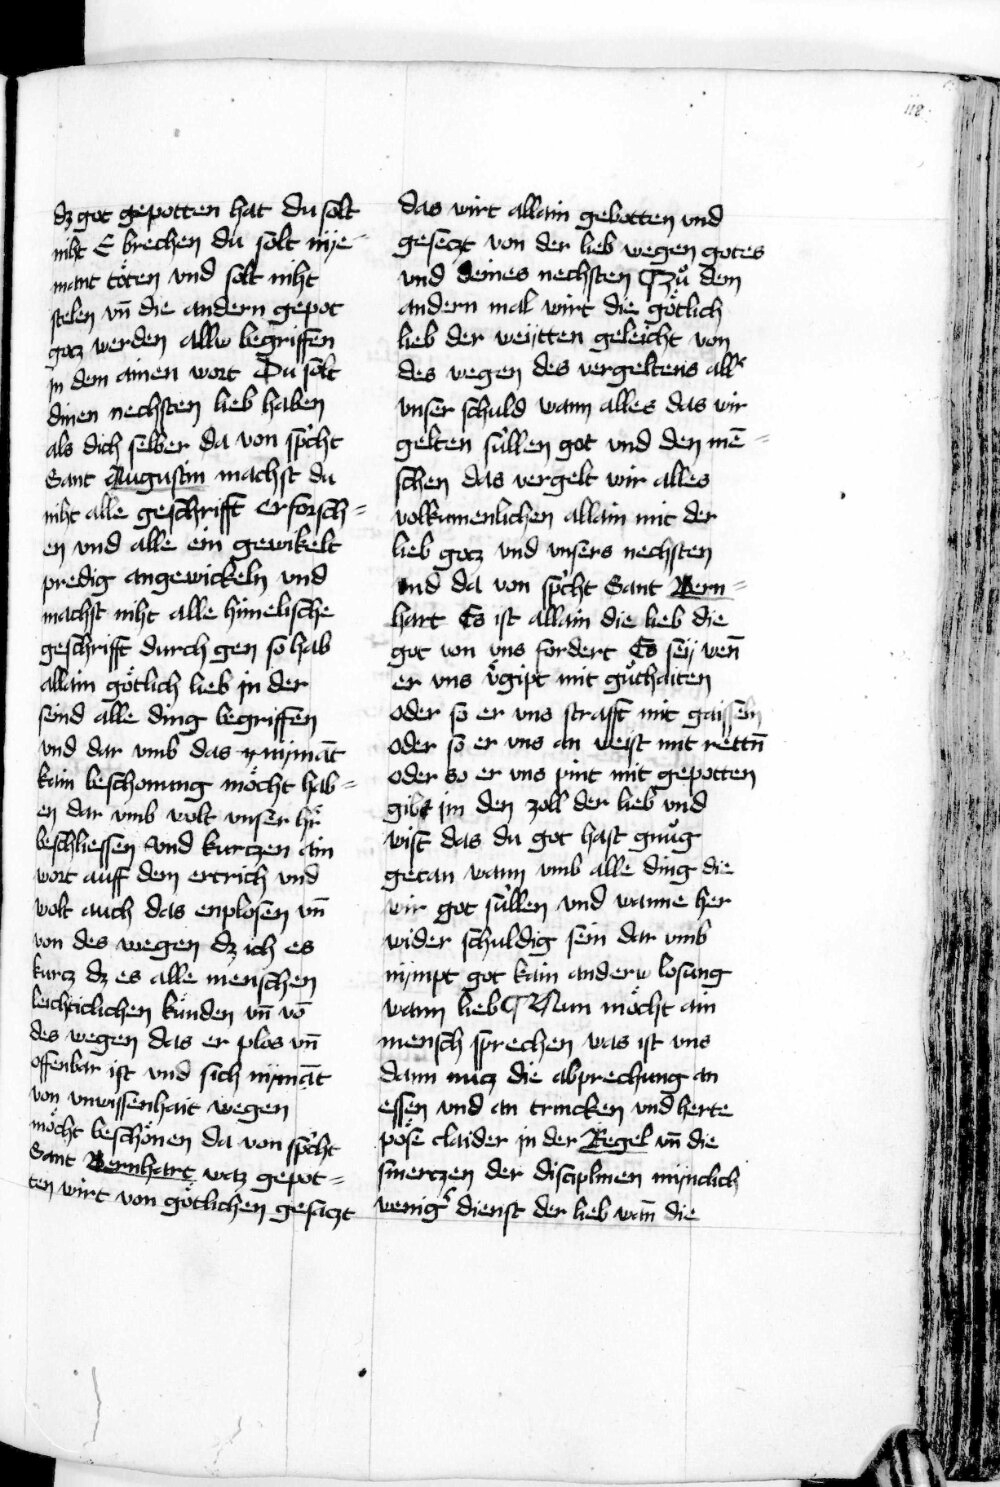 118
dz got gepotten hat du solt
niht E brechen du solt nije-
mant töten vnd solt niht
stelen vn̄ die andern gepot
gotz werden allw begriffen
jn dem ainen wort Du solt
dinen nechsten lieb haben
als dich selber da von spͥcht
Sant Augustin machst du
niht alle geschrifft erforsch=
en vnd alle ein gewikelt
predig angewickeln vnd
machst niht alle himelische
geschrifft durch gen so hab
allain götlich lieb jn der
seind alle ding begriffen
vnd dar vmb das nijmāt
kain beschonung möcht hab=
en dar vmb wolt vnser hr̄
beschliessen vnd kurtzen ain
wort auff dem ertrich vnd
wolt auch das enplosen vn̄
von des wegen dz ich es
kurtz dz es alle menschen
leichticlichen kunden vn̄ vō
des wegen das er plos vn̄
offenbar ist vnd sich nijmāt
von vnwissenhait wegen
möcht beschönen da von spͥcht
Sant Bernhart waz gepot=
ten wirt von götlichen gesatzt
das wirt allain gebotten vnd
gesetzt von der lieb wegen gotes
vnd deines nechsten Zů dem
andern mal wirt die götlich
lieb der weijtten geleicht von
des wegen des vergeltens allˀ
vnser schuld wann alles das wir
gelten süllen got vnd den mē=
schen das vergelt wir alles
volkumenlichen allain mit der
lieb gotz vnd vnsers nechsten
vnd da von spͥcht Sant Bern=
hart Es ist allain die lieb die
got von vns fordert Es seij wen̄
er vns v̓gipt mit gůthaiten
oder so er vns strafft mit gaisseln
oder so er vns an weist mit rettn̄
oder so er vns pint mit gepotten
gibt jm den zoll der lieb vnd
wist das du got hast gnůg
getan wann vmb alle ding die
wir got süllen vnd wanne her
wider schuldig sein dar vmb
nijmpt got kain anderw losung
wann lieb Nun möcht ain
mensch sprechen was ist vns
dann nutz die abprechung an
essen vnd an trincken vnd herte
pöse claider jn der Regel vn̄ die
smertzen der disciplinen mijnclich
wenigˀ dienst der lieb wan̄ die